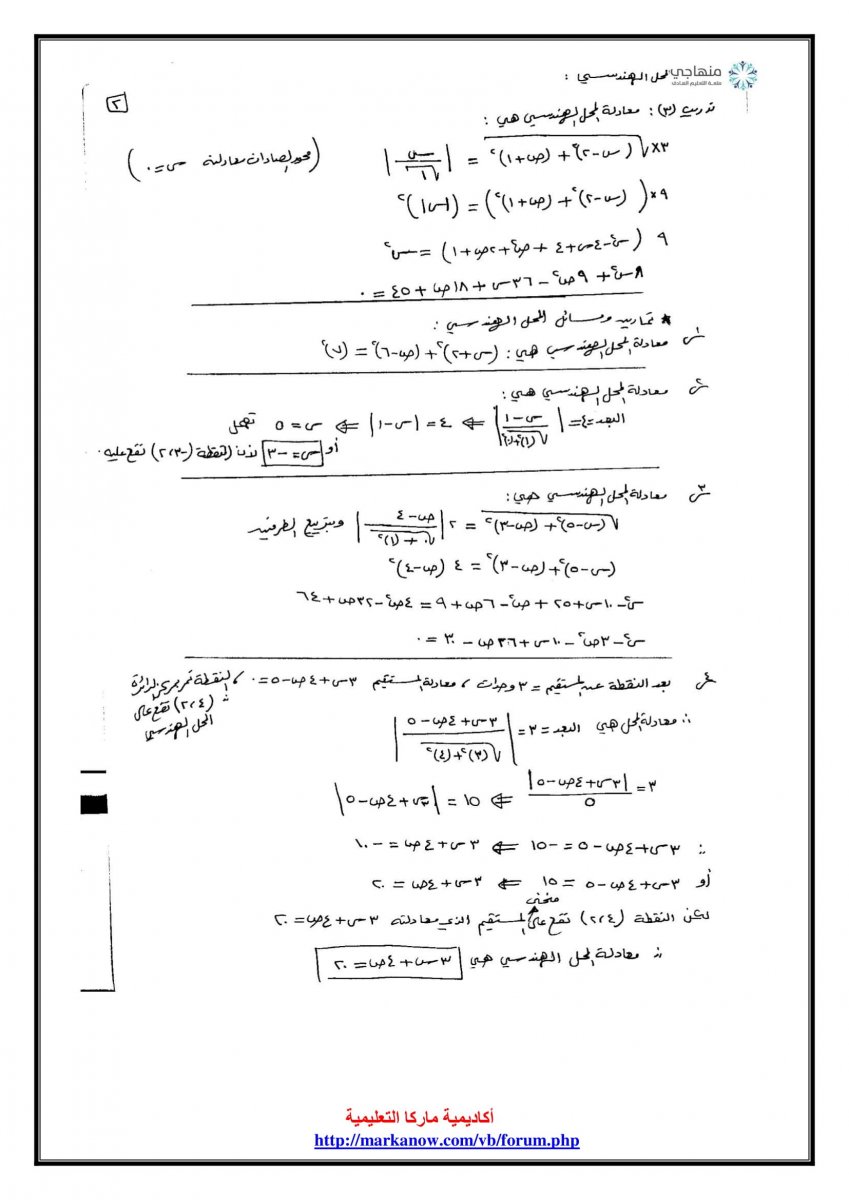 منهاجي
متعة التعليم الهادف
المحل الهندسي :
٢
تدريب (٣): معادلة المحل الهندسي هي :
٣× √((س-٢)² + (ص+١)²) = |س/√١| (محور الصادات معادلته س=٠)
٩× ((س-٢)² + (ص+١)²) = (|س|)²
٩ (س² - ٤س + ٤ + ص² + ٢ص + ١) = س²
٨س² + ٩ص² - ٣٦س + ١٨ص + ٤٥ = ٠
* تمارين ومسائل المحل الهندسي :
س١ معادلة المحل الهندسي هي : (س+٢)² + (ص-٦)² = (٧)²
س٢ معادلة المحل الهندسي هي :
البعد = ٤ = |(س-١)/√((١)²+(٠)²)| ⇐ ٤ = |س-١| ⇐ س = ٥ تهمل
أو س = -٣ لأن النقطة (-٣،٢) تقع عليه.
س٣ معادلة المحل الهندسي هي :
√((س-٥)² + (ص-٣)²) = ٢ |(ص-٤)/√(٠+(١)²)| وبتربيع الطرفين
(س-٥)² + (ص-٣)² = ٤ (ص-٤)²
س² - ١٠س + ٢٥ + ص² - ٦ص + ٩ = ٤ص² - ٣٢ص + ٦٤
س² - ٣ص² - ١٠س + ٢٦ص - ٣٠ = ٠
س٤ بعد النقطة عن المستقيم = ٣ وحدات ، معادلة المستقيم ٣س + ٤ص - ٥ = ٠ ، النقطة تمر بمركز الدائرة
∴ (٢،٤) تقع على
المحل الهندسي
∴ معادلة المحل هي البعد = ٣ = |(٣س + ٤ص - ٥)/√((٣)²+(٤)²)|
٣ = |٣س + ٤ص - ٥|/٥ ⇐ ١٥ = |٣س + ٤ص - ٥|
∴ ٣س + ٤ص - ٥ = -١٥ ⇐ ٣س + ٤ص = -١٠
أو ٣س + ٤ص - ٥ = ١٥ ⇐ ٣س + ٤ص = ٢٠
لكن النقطة (٢،٤) تقع على منحنى المستقيم الذي معادلته ٣س + ٤ص = ٢٠
∴ معادلة المحل الهندسي هي ٣س + ٤ص = ٢٠
أكاديمية ماركا التعليمية
http://markanow.com/vb/forum.php